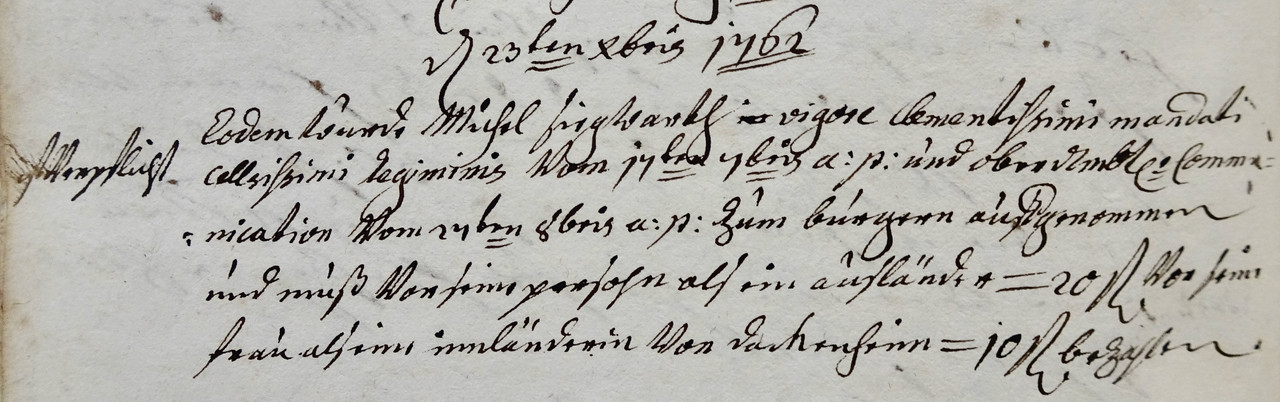 D 23ten Xbris 1762
Eodem wurde Michel Siegwarth in vigore clementissimi mandati
ist Verpflicht
cellsissimi Regiminis Vom 17ten 7bris a: p: und oberambtl. Commu=
=nication Vom 27ten 8bris a: p: Zum burgern auffgenommen
und muß Vor seine persohn als ein ausländer = 20 fl Vor seine
frau als eine innländerin Von dackenheim = 10 fl bezahlen.